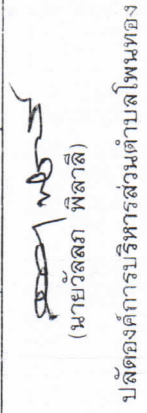 (นายวัลลภ พิลาลี)
ปลัดองค์การบริหารส่วนตำบลโพนทอง